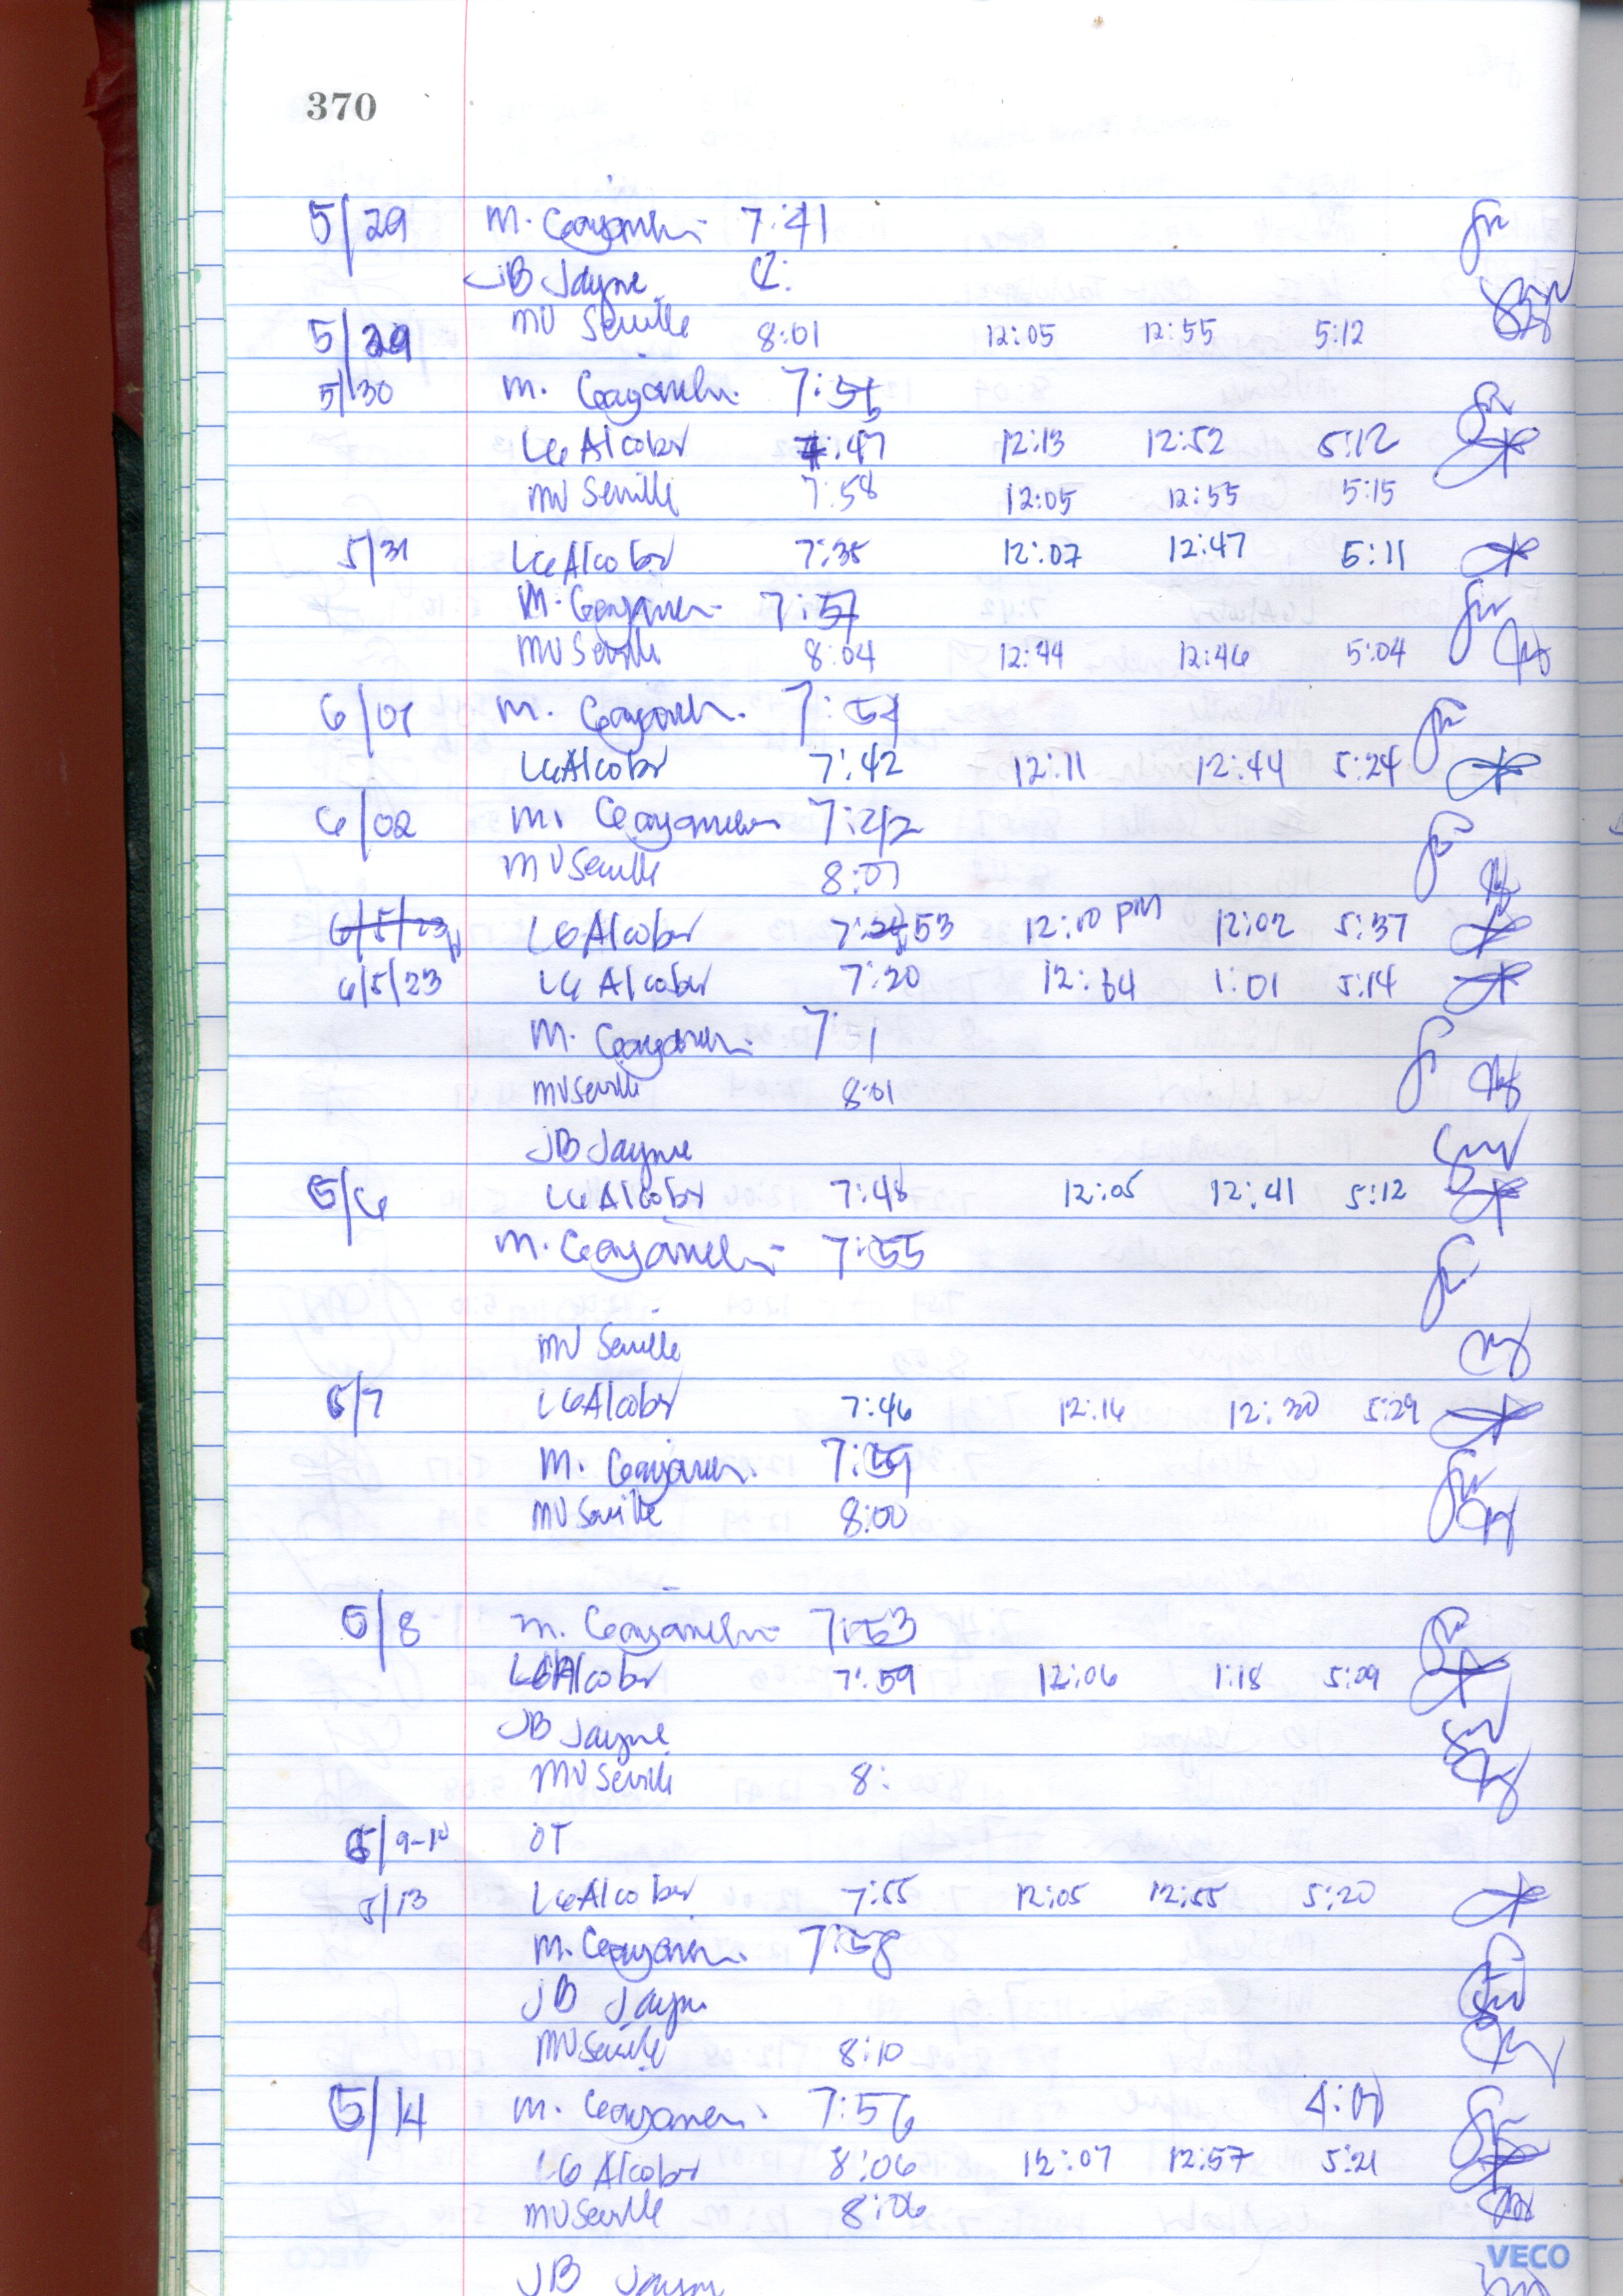 370
5/29 M. 7:41
JB Jayne
5/29 MV Seville 8:01 12:05 12:55 5:12
5/30 M. 7:
LG Alcober 7:47 12:13 12:52 5:12
MV Seville 7:58 12:05 12:55 5:15
5/31 LG Alcober 7:35 12:07 12:47 5:11
M. 7:57
MV Seville 8:04 12:44 12:46 5:04
6/01 M. 7:54
LG Alcober 7:42 12:11 12:44 5:24
6/02 M. 7:22
MV Seville 8:07
6/5/23 LG Alcober 7:53 12:10 PM 12:02 5:37
6/5/23 LG Alcober 7:20 12:04 1:01 5:14
M.
MV Seville 8:01
JB Jayne
5/6 LG Alcober 7:48 12:05 12:41 5:12
M. 7:55
MV Seville
6/7 LG Alcober 7:46 12:16 12:30 5:29
M. 7:59
MV Seville 8:00
5/8 M. 7:53
LG Alcober 7:59 12:06 1:18 5:09
JB Jayne
MV Seville 8:
9-10 OT
5/13 LG Alcober 7:55 12:05 12:55 5:20
M. 7:58
JB Jayne
MV Seville 8:10
5/14 M. 7:56
LG Alcober 8:06 12:07 12:57 5:21
MV Seville 8:06
JB Jayne
VECO